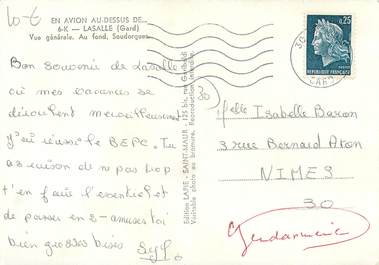 10 €
EN AVION AU-DESSUS DE...
6-K — LASALLE (Gard)
Vue générale. Au fond, Soudorgues
Bon Souvenir de Lasalle
où mes vacances se
déroulent merveilleusement
J'ai réussi le BEPC. Tu
as raison de ne pas trop
t'en faire l'essentiel et
de passer en 2
amuses toi
bien grosses bises
Edition LAPIE - SAINT-MAUR - 125 bis, rue Garibaldi
Véritable photo au bromure. Reproduction interdite.
30
0,25
REPUBLIQUE FRANÇAISE
30
GARD
Melle Isabelle Baron
3 rue Bernard Aton
NIMES
30
Gendarmerie